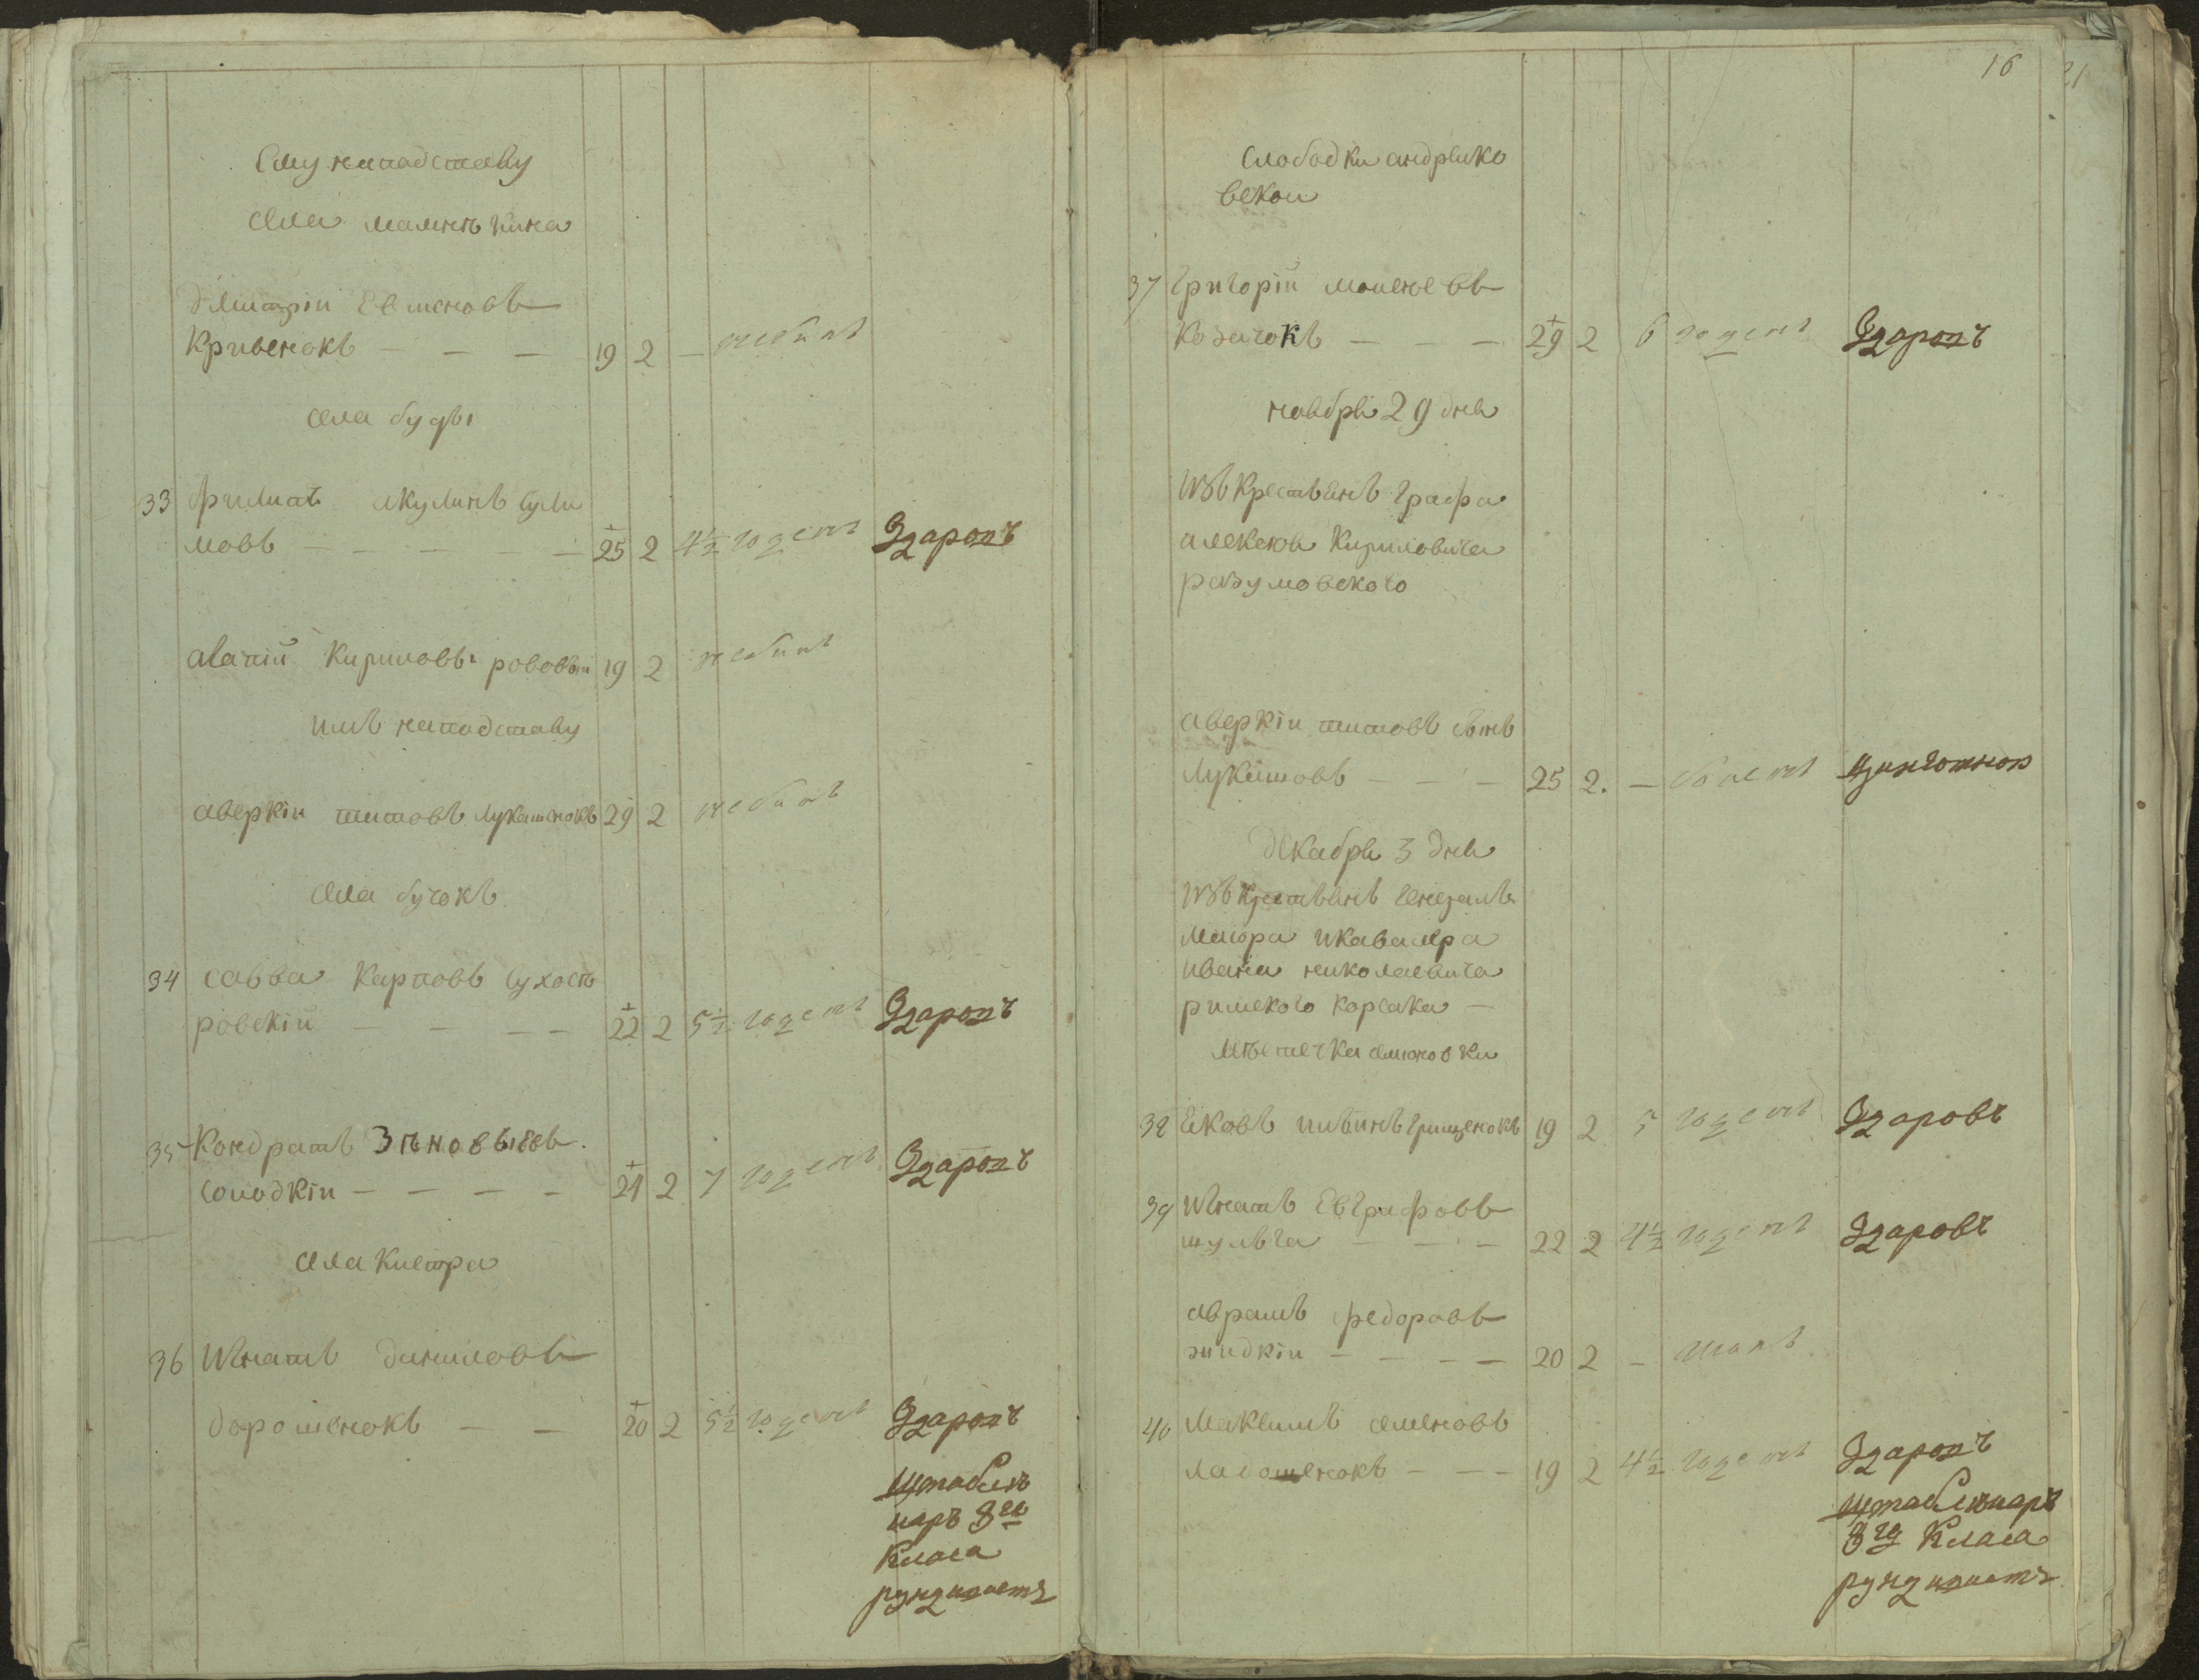 Ему наподставу
села Малинъ кина
Дмитрій Евменовъ
Кривенокъ — — — 19 2 — небылъ
села буды
33 филатъ Акулинъ Сули
мовъ — — — — — 25 2 4½ годенъ Здаровъ
Кириловъ рововый 19 2 небылъ
имъ наподставу
аверкій титовъ Лукашенокъ 29 2 небылъ
села бучокъ
34 савва Карповъ Сухость
ровскій — — — — 22 2 5½ годенъ Здаровъ
35 Кондратъ Зѣновьевъ
солодкій — — — — 21 2 7 годенъ Здаровъ
села Кистра
36 Игнатъ даниловъ
дорошенокъ — — 20 2 5½ годенъ Здаровъ
Штаблѣ
каръ 8го
Класа
16
21
Слободки андрѣико
вской
37 Григорій
Козачокъ — — — 29 2 6 годенъ Здаровъ
ноября 29 дня
Изъ Крестьянъ Графа
алексея Кириловича
разумовского
аверкій титовъ сынъ
Лукашовъ — — — 25 2. —
декабря 3 дня
Изъ Крестьянъ Генералъ
маіора икавалера
ивана николаевича
римского корсака —
мѣстечка семионовки
38 Яковъ Грищенокъ 19 2 5 годенъ Здаровъ
39 Игнатъ Евграфовъ
шульга — — — 22 2 4½ годенъ Здаровъ
аврамъ федоровъ
жидкій — — — — 20 2 — малъ
40 Максимъ семеновъ
ладошенокъ — — — 19 2 4½ годенъ Здаровъ
Штаблѣкаръ
8го Класа